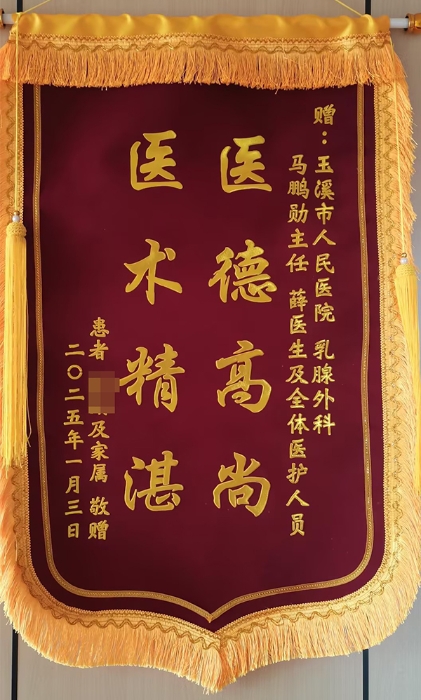 赠：玉溪市人民医院 乳腺外科
马鹏勋主任 薛医生及全体医护人员
医德高尚
医术精湛
患者 及家属 敬赠
二〇二五年一月三日